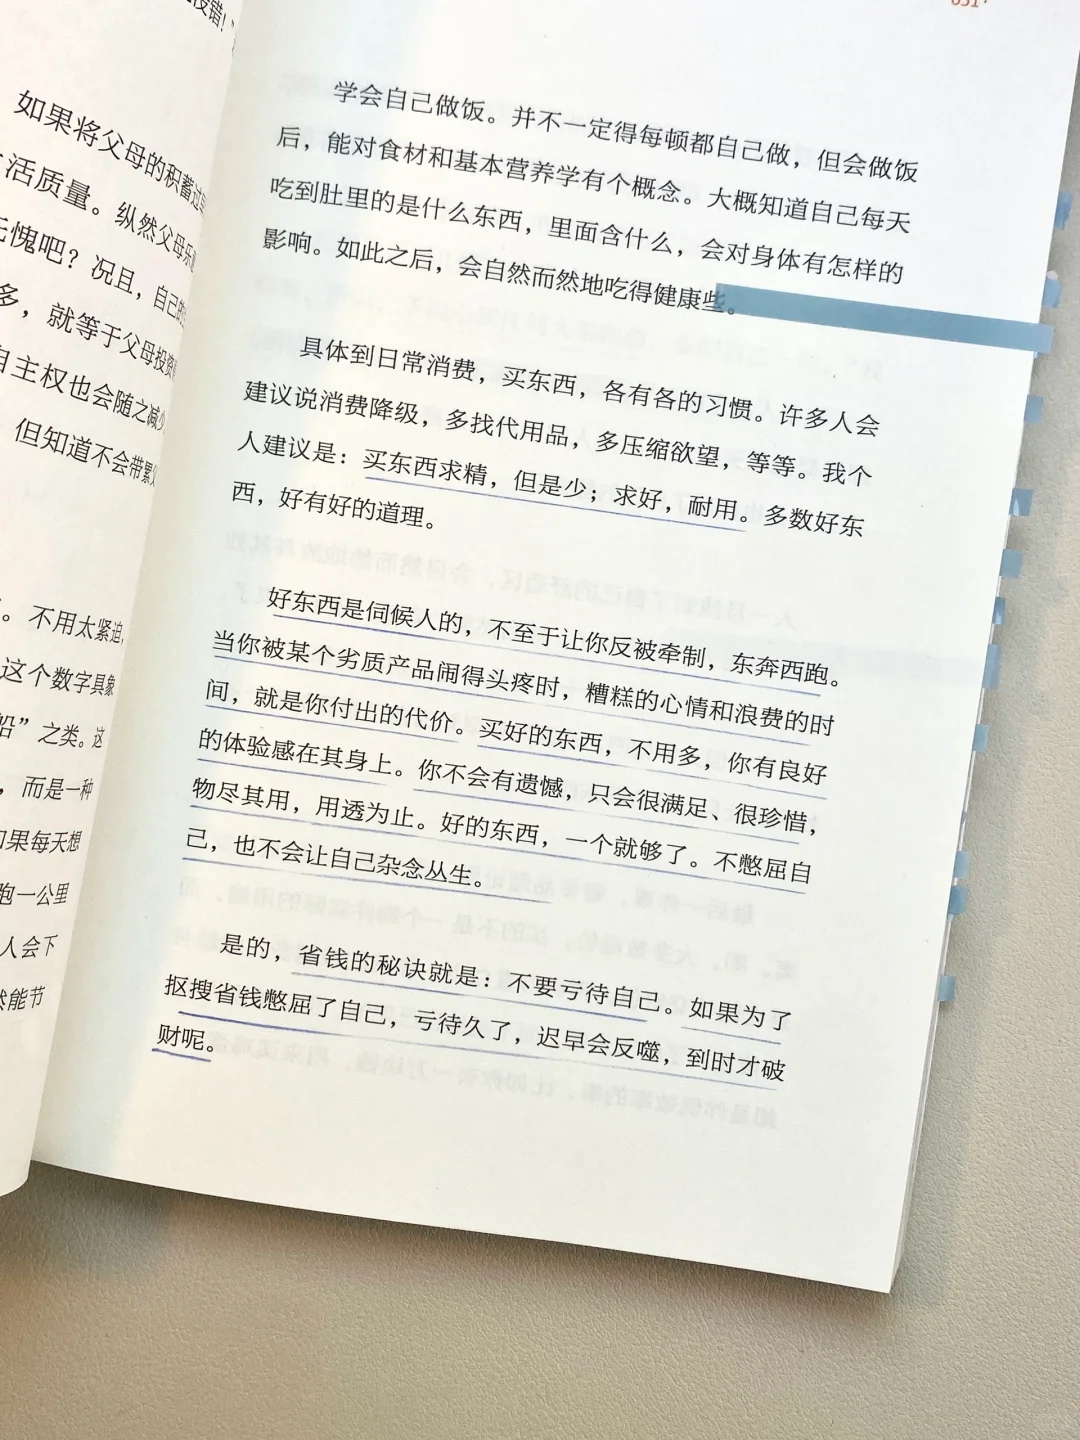 没错！
如果将父母的积蓄过
活质量。纵然父母乐
无愧吧？况且，自己的
多，就等于父母投资
自主权也会随之减少
但知道不会带累父
。不用太紧迫，
这个数字具象
船”之类。这
，而是一种
如果每天想
跑一公里
人会下
然能节
051·
学会自己做饭。并不一定得每顿都自己做，但会做饭
后，能对食材和基本营养学有个概念。大概知道自己每天
吃到肚里的是什么东西，里面含什么，会对身体有怎样的
影响。如此之后，会自然而然地吃得健康些。
具体到日常消费，买东西，各有各的习惯。许多人会
建议说消费降级，多找代用品，多压缩欲望，等等。我个
人建议是：买东西求精，但是少；求好，耐用。多数好东
西，好有好的道理。
好东西是伺候人的，不至于让你反被牵制，东奔西跑。
当你被某个劣质产品闹得头疼时，糟糕的心情和浪费的时
间，就是你付出的代价。买好的东西，不用多，你有良好
的体验感在其身上。你不会有遗憾，只会很满足、很珍惜，
物尽其用，用透为止。好的东西，一个就够了。不憋屈自
己，也不会让自己杂念丛生。
是的，省钱的秘诀就是：不要亏待自己。如果为了
抠搜省钱憋屈了自己，亏待久了，迟早会反噬，到时才破
财呢。